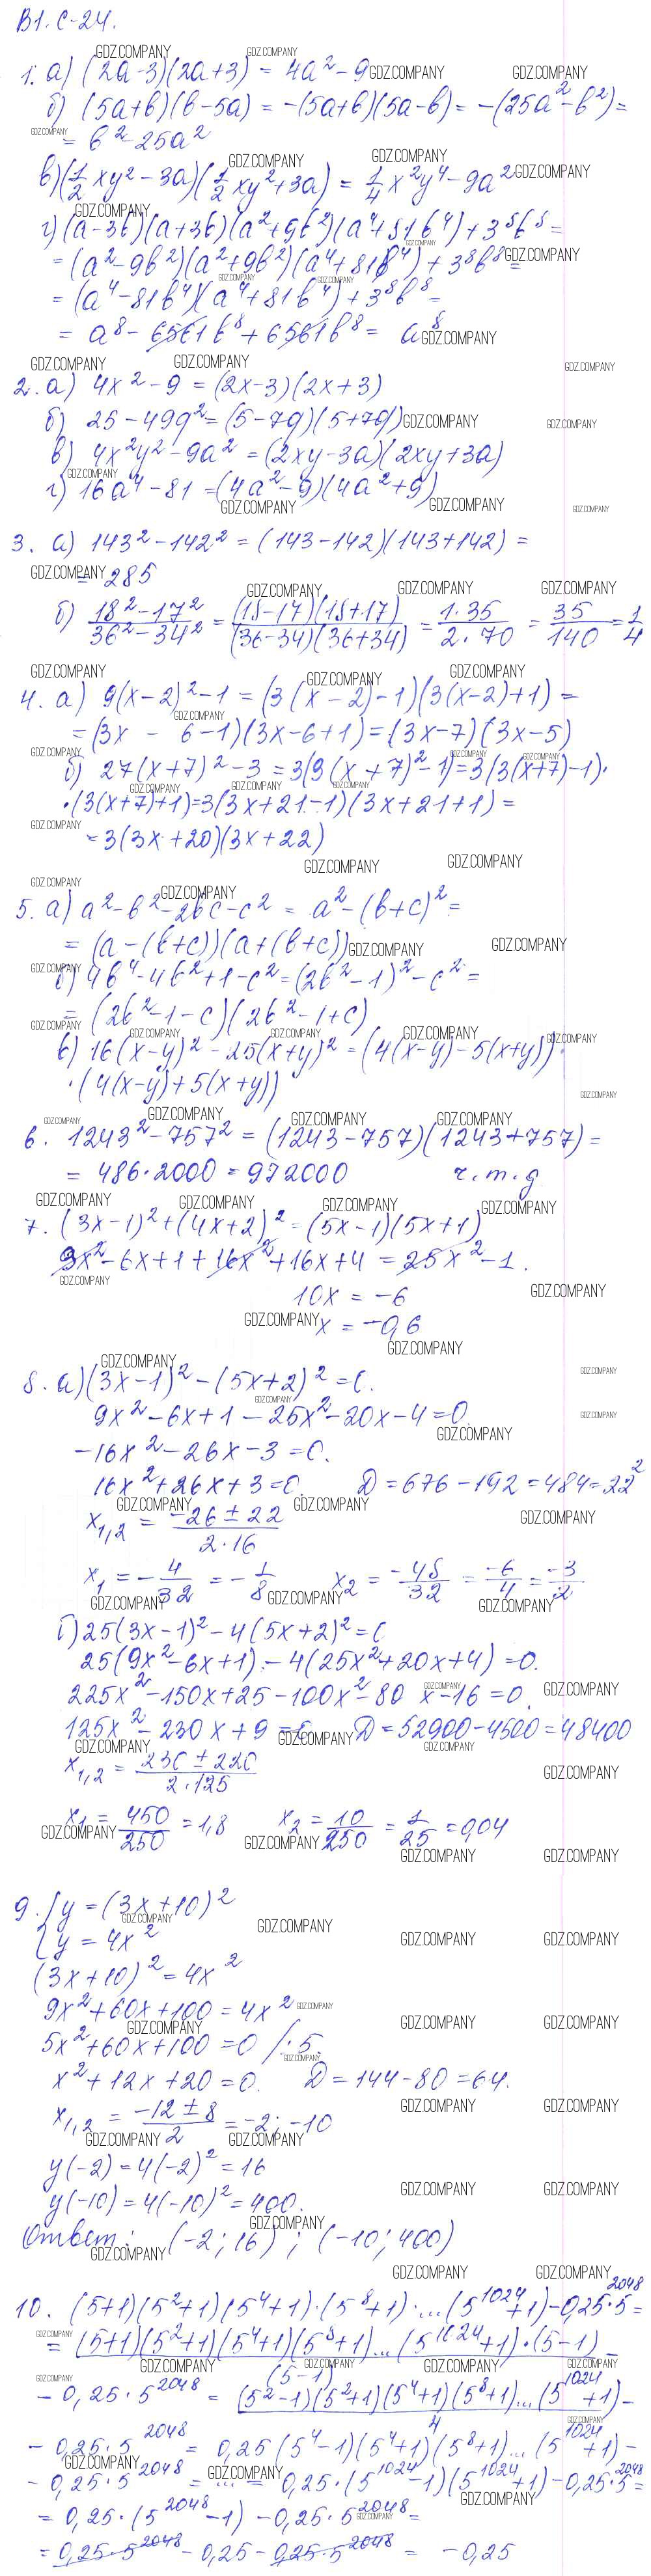 В1. С-24.
1. а) (2a-3)(2a+3) = 4a² - 9
б) (5a+b)(b-5a) = -(5a+b)(5a-b) = -(25a²-b²) =
= b² - 25a²
в) (1/2 xy² - 3a)(1/2 xy² + 3a) = 1/4 x²y⁴ - 9a²
г) (a-3b)(a+3b)(a²+9b²)(a⁴+81b⁴) + 3⁸b⁸ =
= (a²-9b²)(a²+9b²)(a⁴+81b⁴) + 3⁸b⁸ =
= (a⁴-81b⁴)(a⁴+81b⁴) + 3⁸b⁸ =
= a⁸ - 6561b⁸ + 6561b⁸ = a⁸
2. а) 4x² - 9 = (2x-3)(2x+3)
б) 25 - 49q² = (5-7q)(5+7q)
в) 4x²y² - 9a² = (2xy-3a)(2xy+3a)
г) 16a⁴ - 81 = (4a²-9)(4a²+9)
3. а) 143² - 142² = (143-142)(143+142) =
= 285
б) (18²-17²)/(36²-34²) = ((18-17)(18+17))/((36-34)(36+34)) = (1·35)/(2·70) = 35/140 = 1/4
4. а) 9(x-2)² - 1 = (3(x-2)-1)(3(x-2)+1) =
= (3x - 6-1)(3x-6+1) = (3x-7)(3x-5)
б) 27(x+7)² - 3 = 3(9(x+7)²-1) = 3(3(x+7)-1)·
·(3(x+7)+1) = 3(3x+21-1)(3x+21+1) =
= 3(3x+20)(3x+22)
5. а) a² - b² - 2bc - c² = a² - (b+c)² =
= (a-(b+c))(a+(b+c))
б) 4b⁴ - 4b² + 1 - c² = (2b²-1)² - c² =
= (2b²-1-c)(2b²-1+c)
в) 16(x-y)² - 25(x+y)² = (4(x-y)-5(x+y))·
·(4(x-y)+5(x+y))
6. 1243² - 757² = (1243-757)(1243+757) =
= 486·2000 = 972000 ч.т.д
7. (3x-1)² + (4x+2)² = (5x-1)(5x+1)
9x² - 6x + 1 + 16x² + 16x + 4 = 25x² - 1.
10x = -6
x = -0,6
8. а) (3x-1)² - (5x+2)² = 0.
9x² - 6x + 1 - 25x² - 20x - 4 = 0
-16x² - 26x - 3 = 0.
16x² + 26x + 3 = 0. D = 676 - 192 = 484 = 22²
x₁,₂ = (-26 ± 22)/(2·16)
x₁ = -4/32 = -1/8 x₂ = -48/32 = -6/4 = -3/2
б) 25(3x-1)² - 4(5x+2)² = 0
25(9x²-6x+1) - 4(25x²+20x+4) = 0.
225x² - 150x + 25 - 100x² - 80 x - 16 = 0.
125x² - 230x + 9 = 0 D = 52900 - 4500 = 48400
x₁,₂ = (230 ± 220)/(2·125)
x₁ = 450/250 = 1,8 x₂ = 10/250 = 1/25 = 0,04
9. { y = (3x+10)²
{ y = 4x²
(3x+10)² = 4x²
9x² + 60x + 100 = 4x²
5x² + 60x + 100 = 0 /:5.
x² + 12x + 20 = 0. D = 144 - 80 = 64.
x₁,₂ = (-12 ± 8)/2 = -2; -10
y(-2) = 4(-2)² = 16
y(-10) = 4(-10)² = 400.
Ответ: (-2; 16); (-10; 400)
10. (5+1)(5²+1)(5⁴+1)·(5⁸+1)·...(5¹⁰²⁴+1) - 0,25·5²⁰⁴⁸ =
= ((5+1)(5²+1)(5⁴+1)(5⁸+1)...(5¹⁰²⁴+1)·(5-1))/(5-1) -
- 0,25·5²⁰⁴⁸ = ((5²-1)(5²+1)(5⁴+1)(5⁸+1)...(5¹⁰²⁴+1))/4 -
- 0,25·5²⁰⁴⁸ = 0,25(5⁴-1)(5⁴+1)(5⁸+1)...(5¹⁰²⁴+1) -
- 0,25·5²⁰⁴⁸ = ... = 0,25·(5¹⁰²⁴-1)(5¹⁰²⁴+1) - 0,25·5²⁰⁴⁸ =
= 0,25·(5²⁰⁴⁸-1) - 0,25·5²⁰⁴⁸ =
= 0,25·5²⁰⁴⁸ - 0,25 - 0,25·5²⁰⁴⁸ = -0,25
GDZ.COMPANY